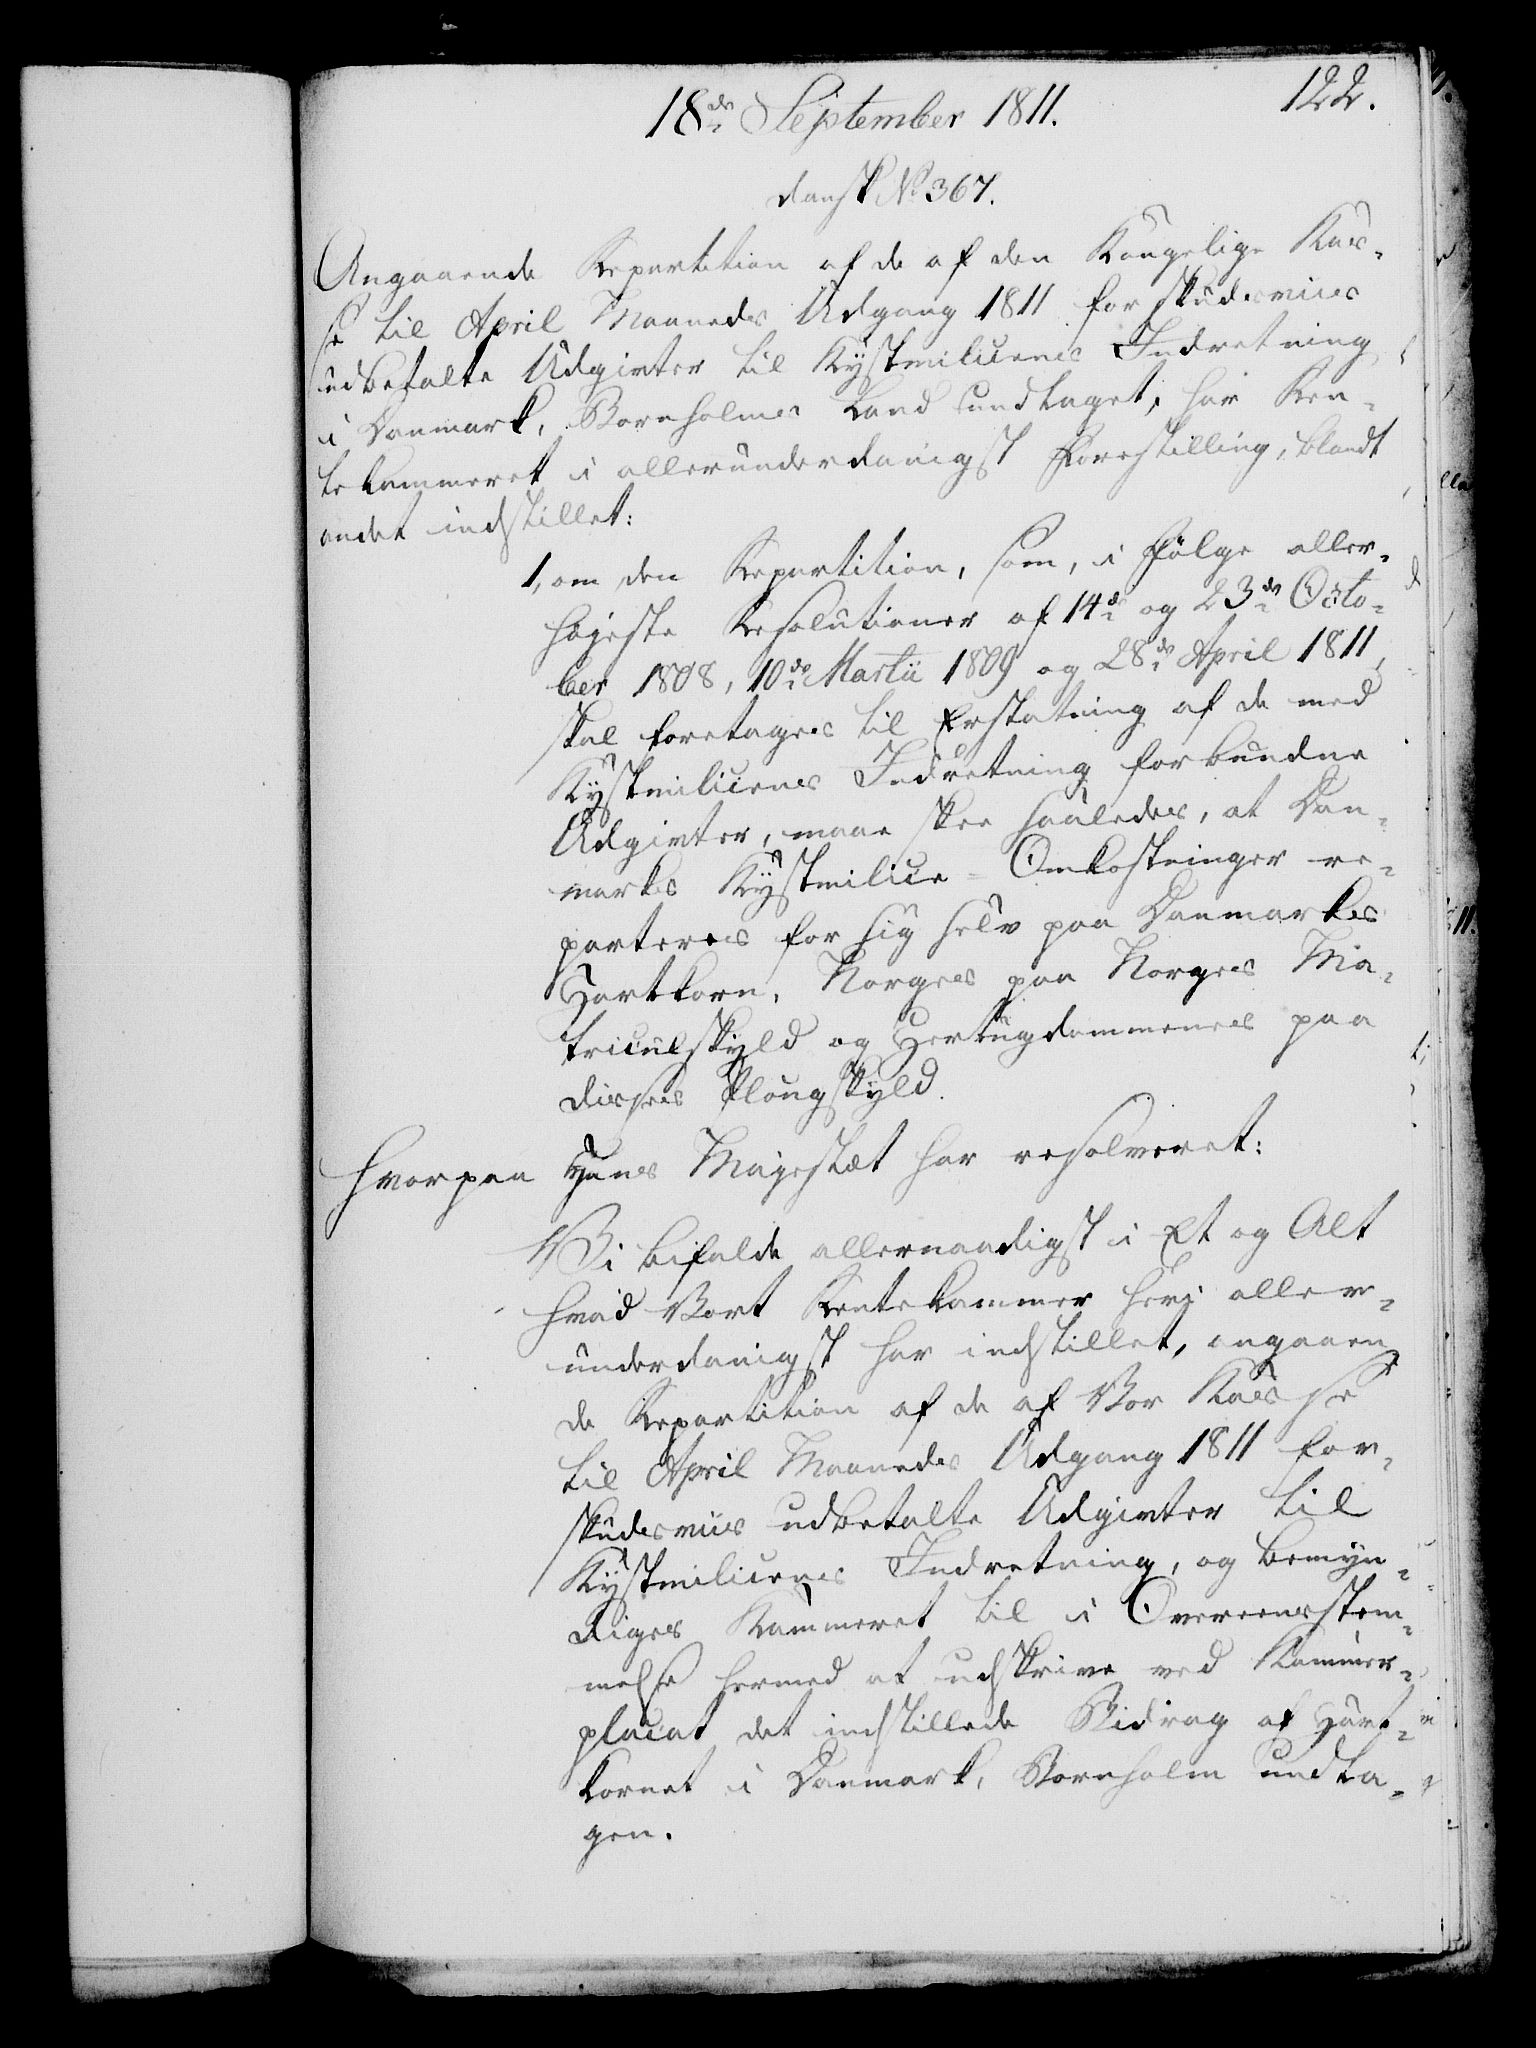 122.
18de September 1811.
dansk No 367.
Angaaende Repartition af de af den Kongelige Kas-
se til April Maaneds Udgang 1811 forskudsviis
udbetalte Udgivter til Kystmilicens Indretning
i Danmark, Bornholms Land undtaget, har Ren-
tekammeret i allerunderdanigst Forestilling, blandt
andet indstillet:
1, om den Repartition, som, i Følge aller-
høieste Resolutioner af 14de og 23de Octo-
ber 1808, 10de Martii 1809 og 28de April 1811,
skal foretages til Erstatning af de med
Kystmilicens Indretning forbundne
Udgivter, maae skee saaledes, at Dan-
marks Kystmilice-Omkostninger re-
parteres for sig selv paa Danmarks
Hartkorn, Norges paa Norges Ma-
triculskyld og Hertugdømmenes paa
disses Plougskyld.
Hvorpaa Hans Majestæt har resolveret:
Vi bifalde allernaadigst i Et og Alt
hvad Vort Rentekammer heri aller-
underdanigst har indstillet, angaaen-
de Repartition af de af Vor Kasse
til April Maaneds Udgang 1811 for-
skudsviis udbetalte Udgivter til
Kystmilicens Indretning, og bemyn-
diges Kammeret til i Overeensstem-
melse hermed at udskrive ved Kammer-
placat det indstillede Bidrag af Hart-
kornet i Danmark, Bornholm undta-
gen.